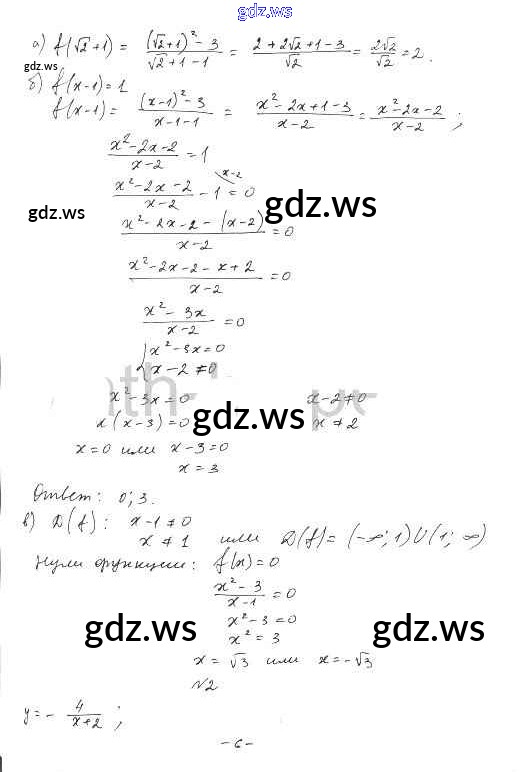 gdz.ws
а) f(√2+1) = ((√2+1)²-3)/(√2+1-1) = (2+2√2+1-3)/√2 = 2√2/√2 = 2.
gdz.ws
б) f(x-1)=1
f(x-1) = ((x-1)²-3)/(x-1-1) = (x²-2x+1-3)/(x-2) = (x²-2x-2)/(x-2) ;
(x²-2x-2)/(x-2) = 1
(x²-2x-2)/(x-2) - 1 \x-2 = 0
gdz.ws gdz.ws
(x²-2x-2-(x-2))/(x-2) = 0
(x²-2x-2-x+2)/(x-2) = 0
(x²-3x)/(x-2) = 0
{ x²-3x=0
x-2≠0
x²-3x=0 x-2≠0
x(x-3)=0 x≠2
gdz.ws
x=0 или x-3=0
x=3
Ответ: 0; 3.
в) D(f): x-1≠0
x≠1 или D(f)=(-∞;1)∪(1;∞)
Нули функции: f(x)=0
(x²-3)/(x-1) = 0
x²-3=0
gdz.ws gdz.ws
x²=3
x=√3 или x=-√3
№2
y = - 4/(x+2) ;
-6-